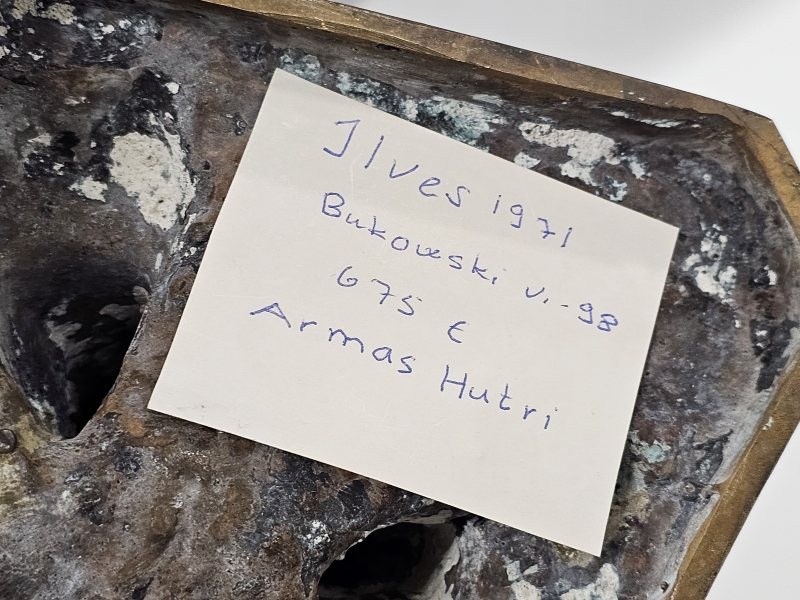 Ilves 1971
Bukowski v.-98
675 €
Armas Hutri